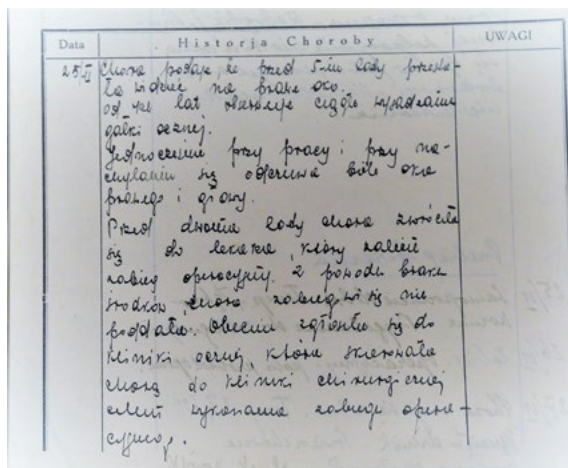 Data Historja Choroby UWAGI
25/II Chora podaje że przed 5-iu laty przesta-
ła widzieć na prawe oko.
od lat obserwuje ciągle wysadzenie
gałki ocznej.
Jednocześnie przy pracy i przy na-
chylaniu się odczuwa bóle oka
prawego i głowy.
Przed dwoma laty chora zwróciła
się do lekarza, który zalecił
zabieg operacyjny. Z powodu braku
środków chora zabiegowi się nie
poddała. Obecnie zgłosiła się do
kliniki ocznej, która skierowała
chorą do kliniki chirurgicznej
celem wykonania zabiegu opera-
cyjnego.